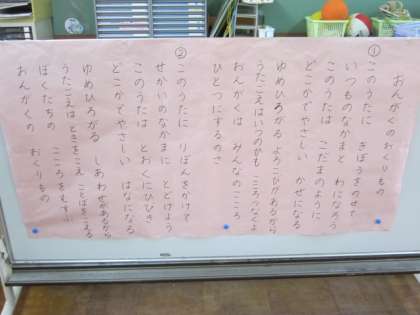 おんがくのおくりもの
①
このうたに きぼうをのせて
いつものなかまと わになろう
このうたは こだまのように
どこかでやさしい かぜになる
ゆめひろがる よろこびがあるから
うたごえはいつのひも こころつなぐよ
おんがくは みんなのこころ
ひとつにするのさ
②
このうたに りぼんをかけて
せかいのなかまに とどけよう
このうたは とおくにひびき
どこかでやさしい はなになる
ゆめひろがる しあわせがあるから
うたごえは ときをこえ ことばをこえる
ぼくたちの こころをむすぶ
おんがくの おくりもの